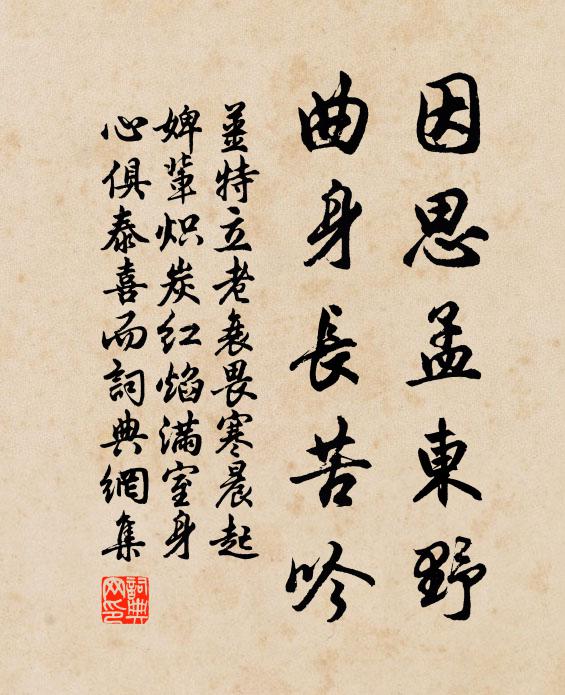 因思孟東野
曲身長苦吟
姜特立老衰畏寒晨起
婢輩炽炭红焰满室身
心俱泰喜而詞典網集
詞典網印